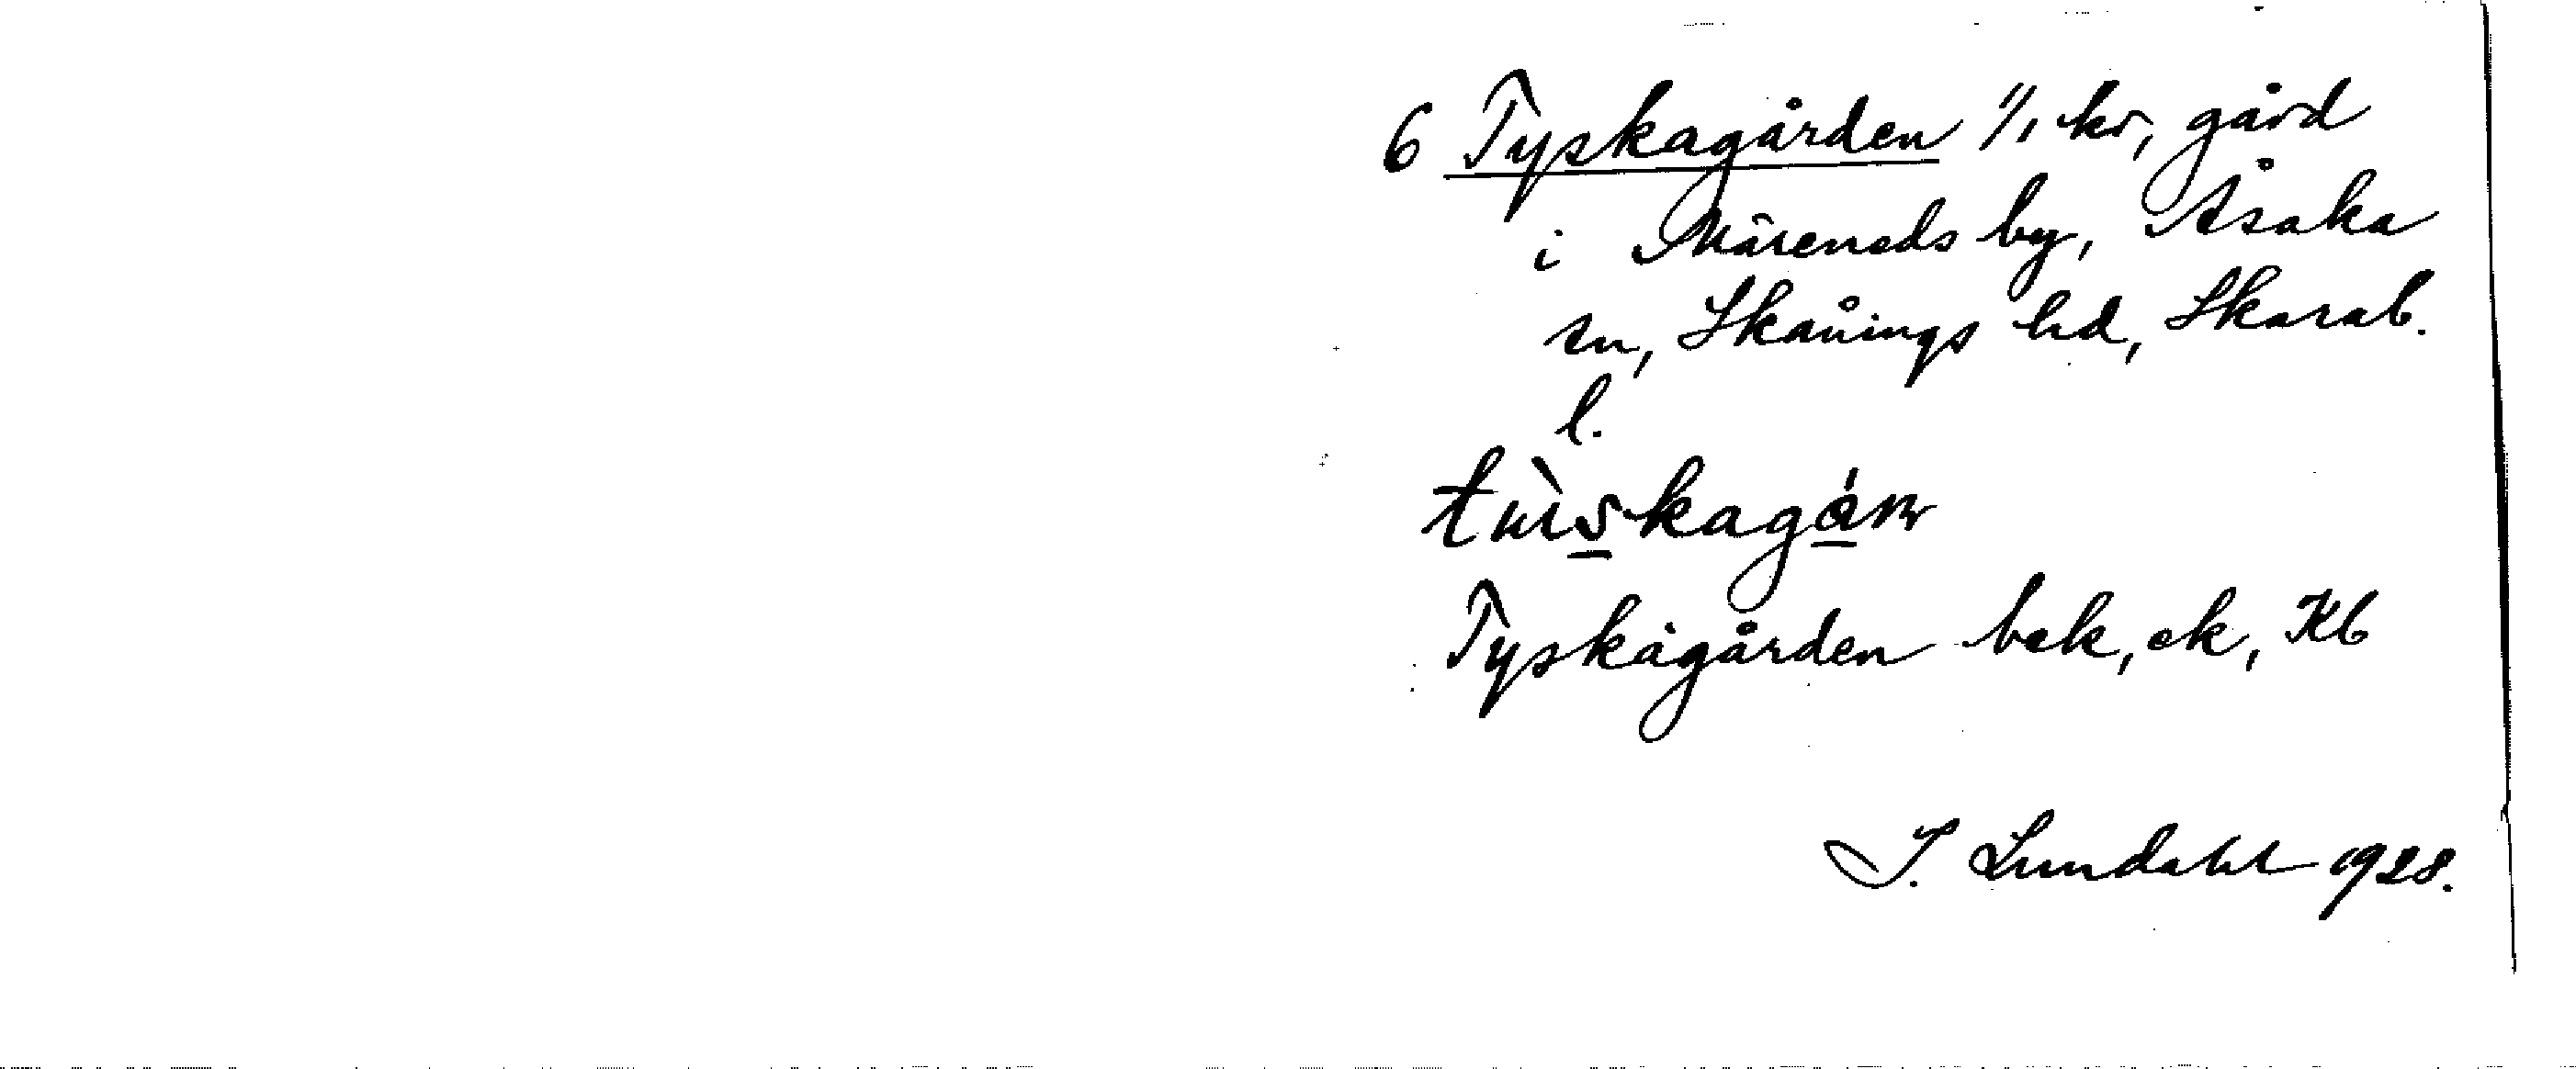 6 Tyskagården 1/1 kr, gård
i Märeneds by, Åsaka
sn, Skånings hd, Skarab.
l.
Tyskagården bek, ek, Kb
I. Lundahl 1928.